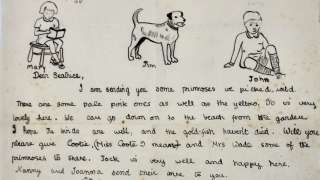 Mary
Jim
John
Dear Beatrice,
I am sending you some primroses we picked wild.
There are some pale pink ones as well as the yellow. It is very
lovely here. We can go down on to the beach from the garden.
I hope the birds are well, and the gold-fish haven't died. Will you
please give Cootie, (Miss Coote I mean) and Mrs Wade some of the
primroses to share. Jock is very well and happy here.
Nanny and Joanna send their love to you.